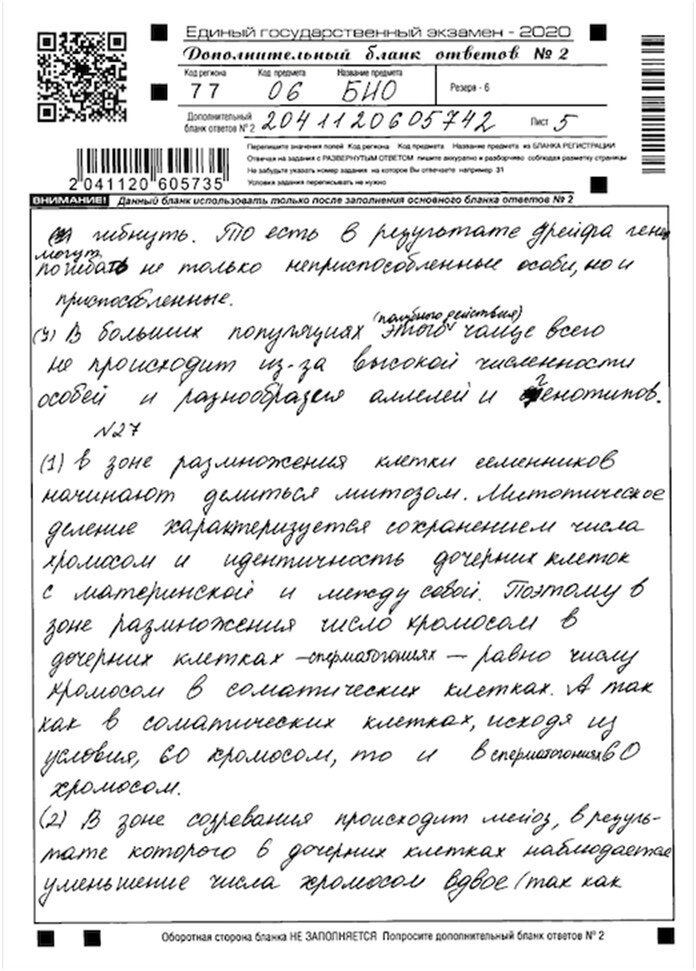 Единый государственный экзамен - 2020
Дополнительный бланк ответов № 2
Код региона Код предмета Название предмета
77 06 БИО
Резерв - 6
Дополнительный бланк ответов № 2 2041120605742 Лист 5
Перепишите значения полей Код региона Код предмета Название предмета из БЛАНКА РЕГИСТРАЦИИ
Отвечая на задания с РАЗВЕРНУТЫМ ОТВЕТОМ пишите аккуратно и разборчиво соблюдая разметку страницы
Не забудьте указать номер задания на которое Вы отвечаете например 31
Условия задания переписывать не нужно
2041120 605735
ВНИМАНИЕ! Данный бланк использовать только после заполнения основного бланка ответов № 2
гибнуть. То есть в результате дрейфа генов
могут
погибать не только неприспособленные особи, но и
приспособленные.
(подобного действия)
В больших популяциях этого чаще всего
не происходит из-за высокой численности
особей и разнообразия аллелей и генотипов.
№27
(1) в зоне размножения клетки семенников
начинают делиться митозом. Митотическое
деление характеризуется сохранением числа
хромосом и идентичность дочерних клеток
с материнской и между собой. Поэтому в
зоне размножения число хромосом в
дочерних клетках – сперматогониях – равно числу
хромосом в соматических клетках. А так
как в соматических клетках, исходя из
условия, 60 хромосом, то и в сперматогониях 60
хромосом.
(2) В зоне созревания происходит мейоз, в резуль-
тате которого в дочерних клетках наблюдается
уменьшение числа хромосом вдвое (так как
Оборотная сторона бланка НЕ ЗАПОЛНЯЕТСЯ Попросите дополнительный бланк ответов № 2